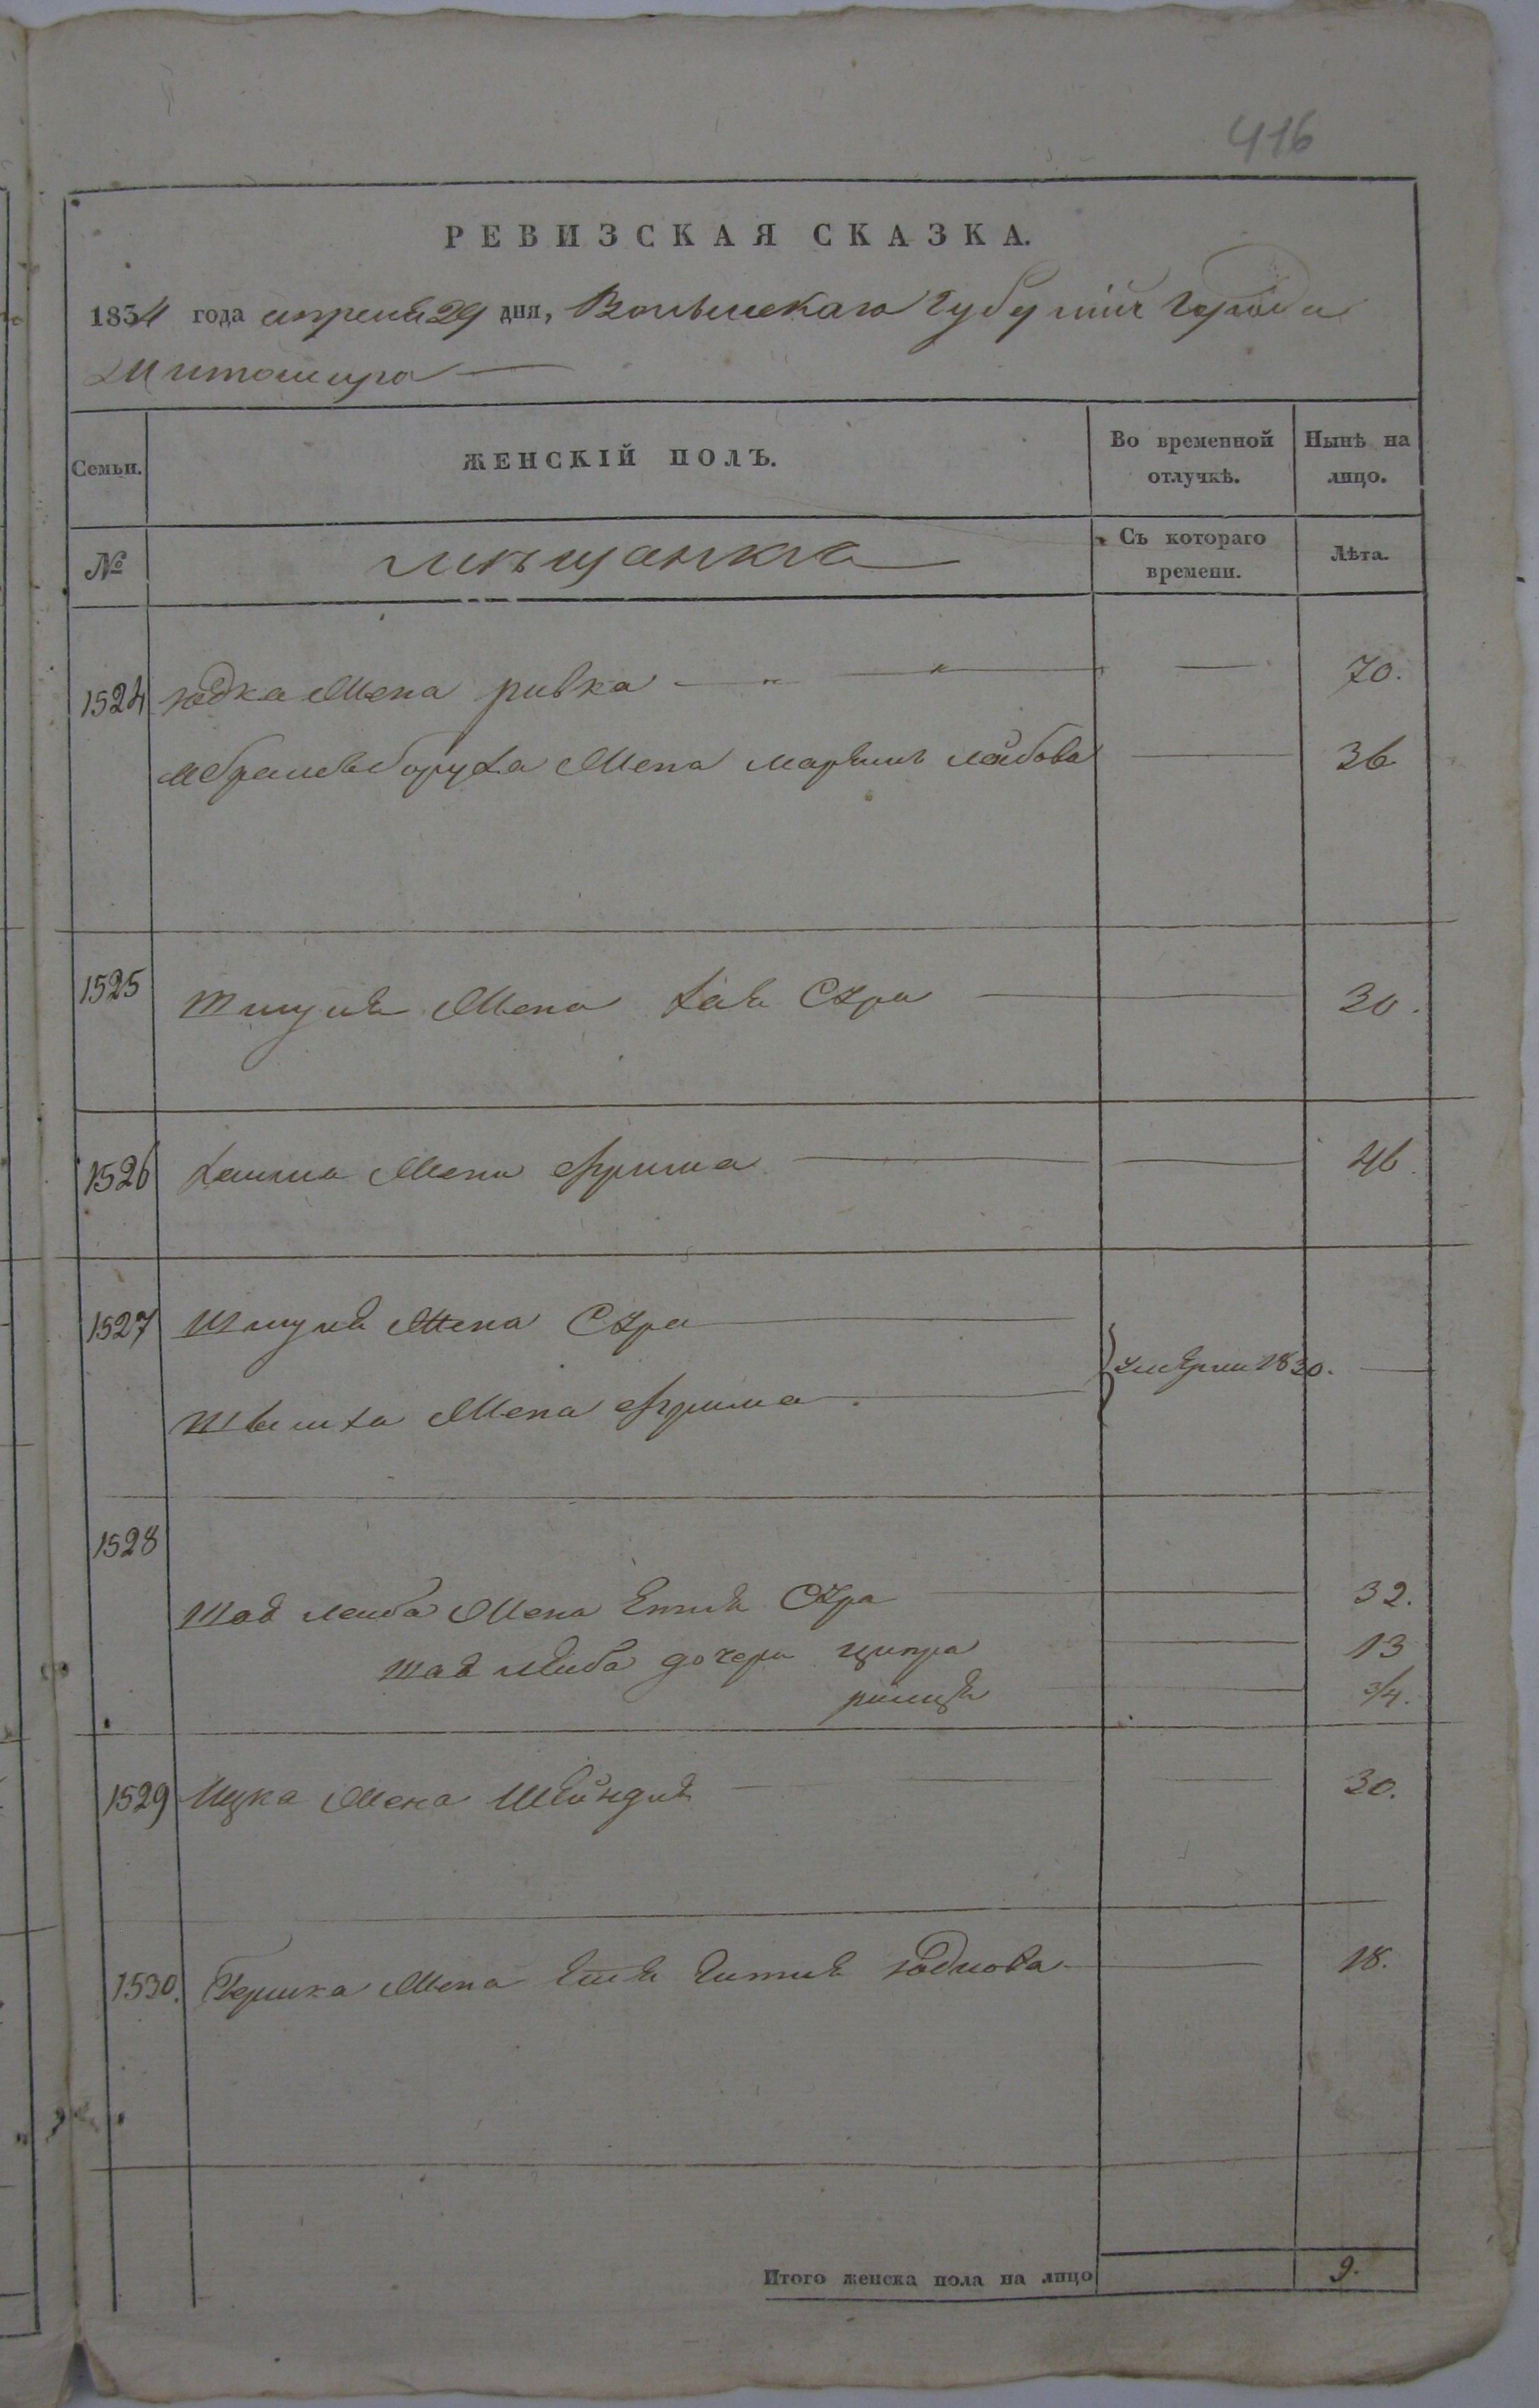 416
РЕВИЗСКАЯ СКАЗКА.
1854 года апреля 29 дня, Волынскаго губерніи города
Житомира —
Семьи. ЖЕНСКІЙ ПОЛЪ. Во временной отлучкѣ. Нынѣ на лицо.
№ мѣщанки Съ котораго времени. Лѣта.
1524 юдка жена ривка — — — 70.
жена марьямъ лейбова — 36
1525 Шмуля жена хая Сура — — 30.
1526 хаима жена фрима — — 46.
1527 Шмуля жена Сура —
жена фрима — 1830. —
1528
лейба жена Сура — 32.
дочери ципра — 13
— 3/4.
1529 Ицка жена Шейндля — — 30.
1530. Гершка жена — 18.
Итого женска пола на лицо 9.